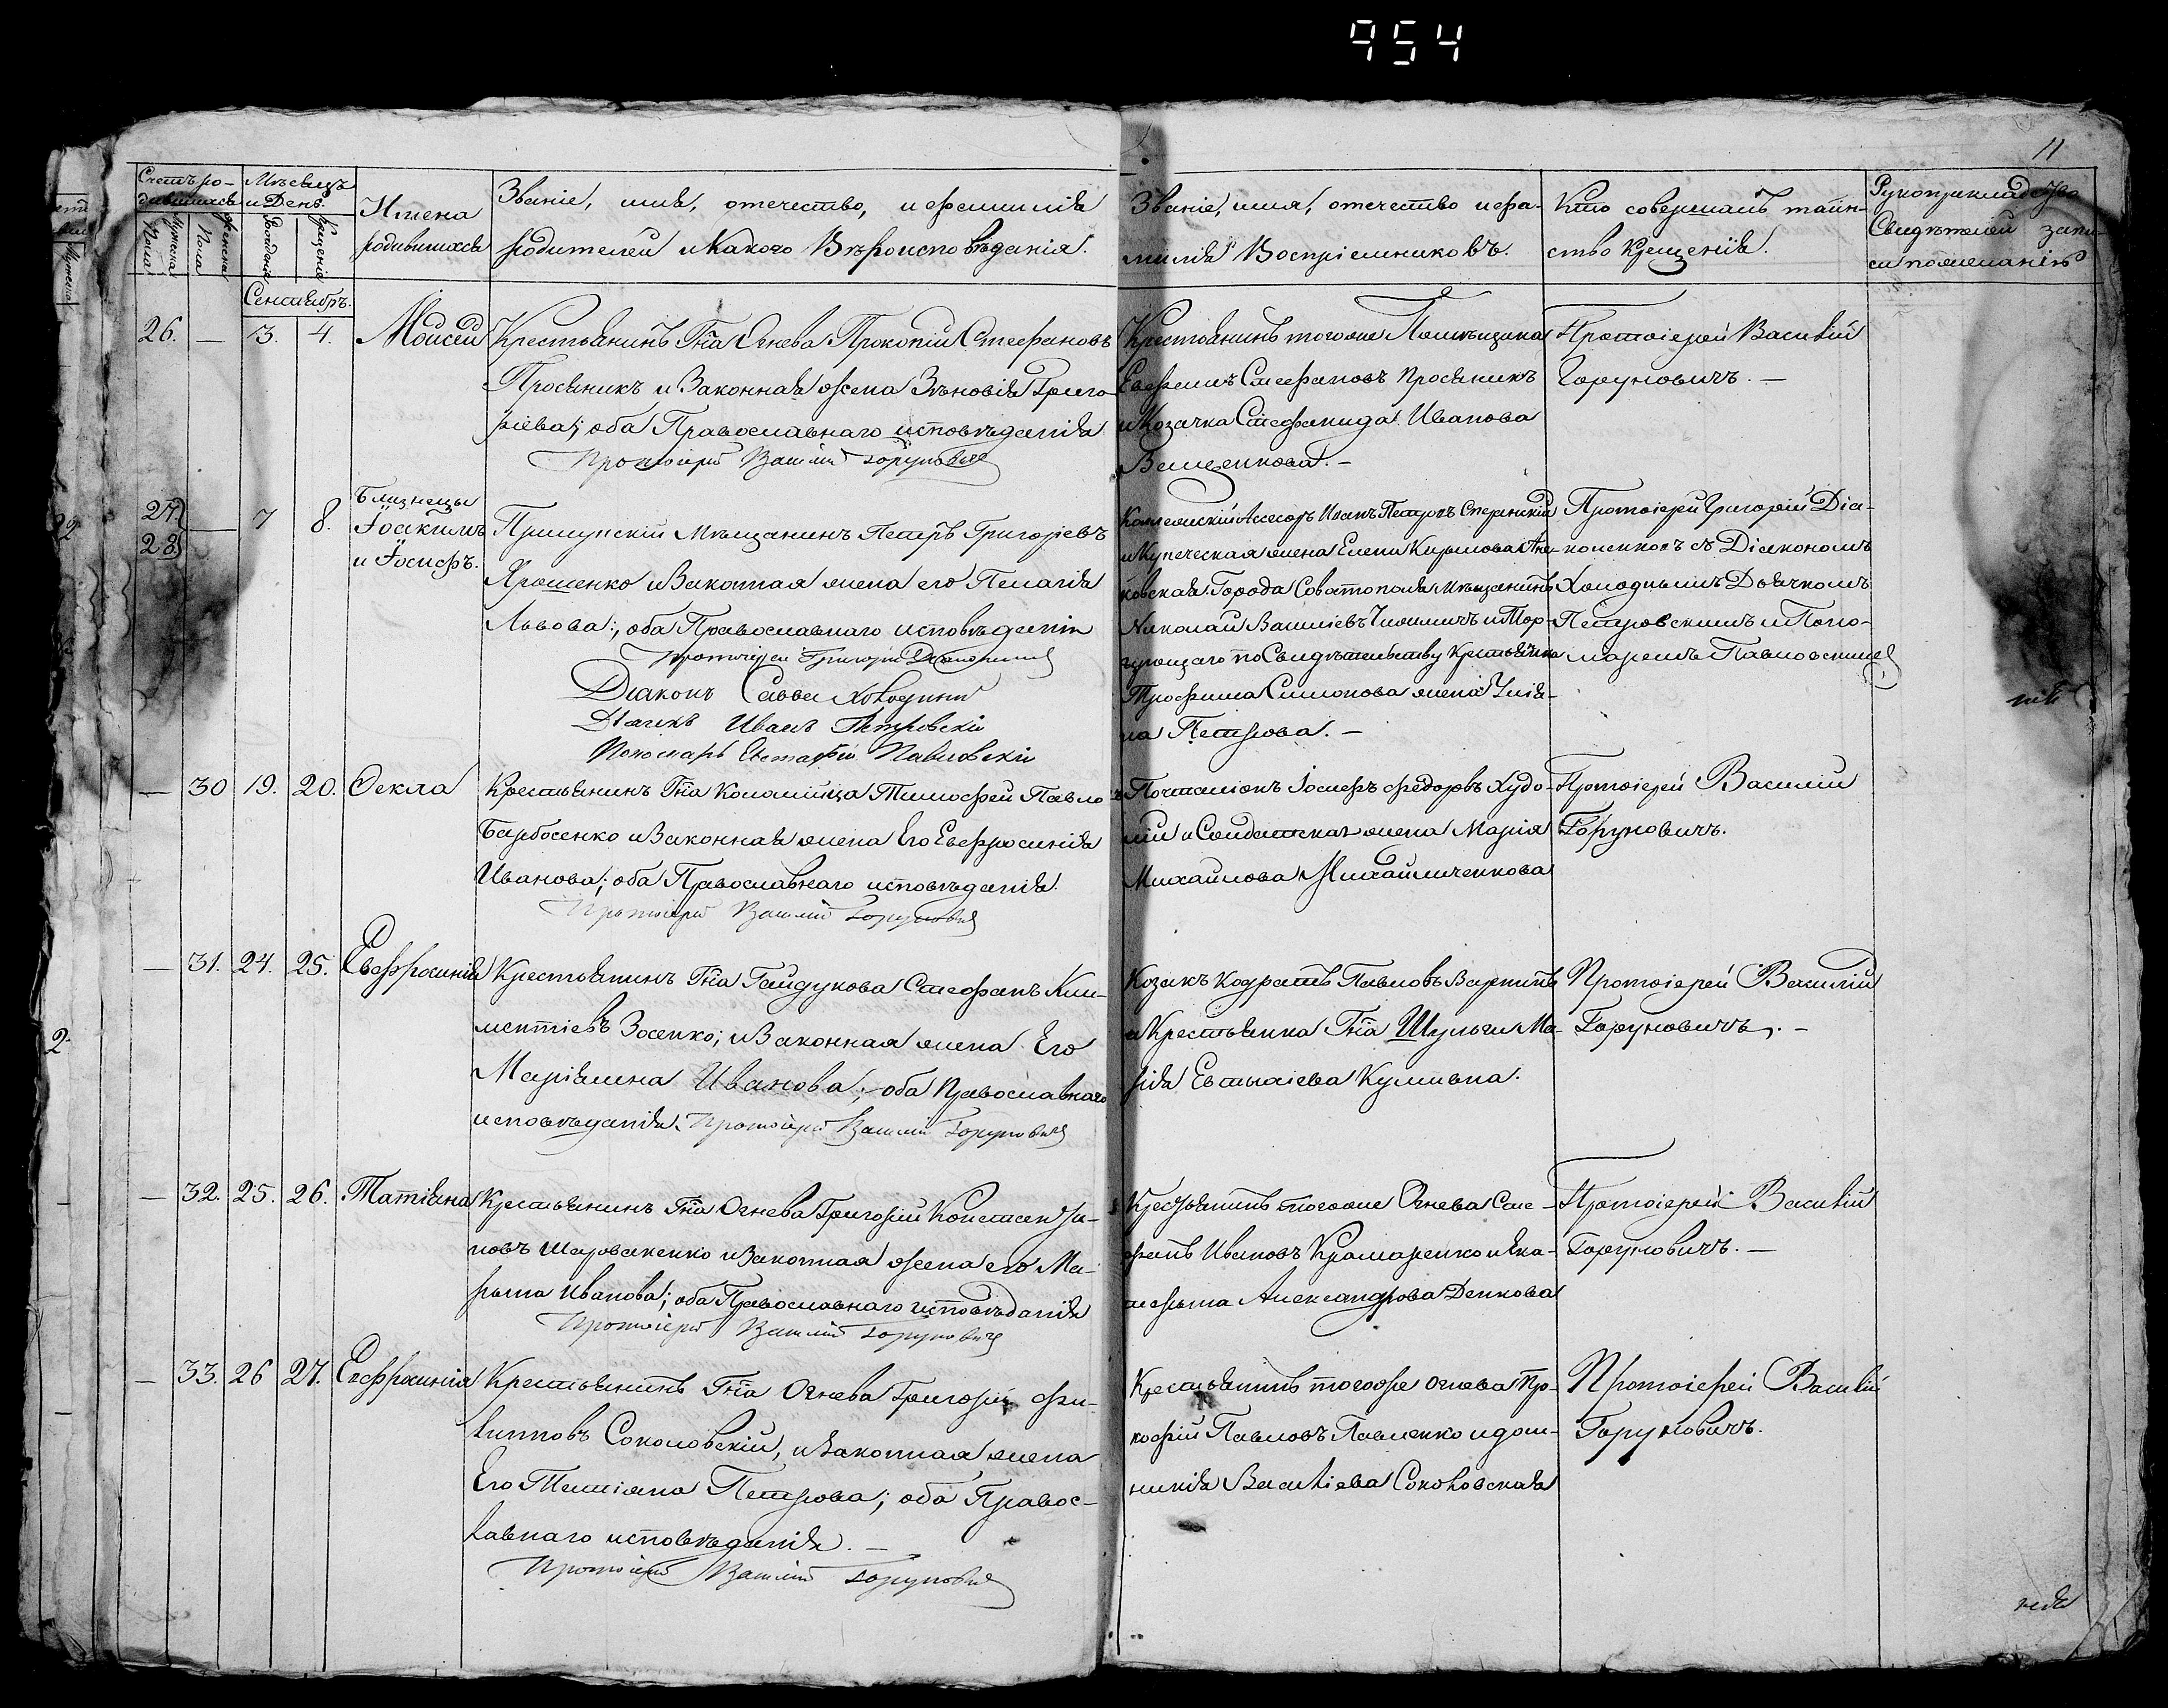 954
11
Счетъ ро-
дившихся
Мѣсяцъ
и День.
Мужска Пола
Женска Пола
Рожденіе
Крещеніе
Имена
родившихся
Званіе, имя, отечество, и фамилія
родителей и Какого Вѣроисповѣданія.
Званіе, имя, отечество и фа-
милія Воспріемниковъ.
Кто совершалъ таин-
ство Крещенія.
Рукоприкладство
Свидѣтелей запи-
си по желанію
Сентябрь.
26. — 3. 4. Моисей
Крестьянинъ Гна Огнева Прокопій Стефановъ
Просяникъ и Законная жена Зѣновія Григо-
ріева; оба Православнаго исповѣданія
Протоіерей Василій Горуновичъ
Крестьянинъ тогоже Помѣщика
Евфимъ Стефановъ Просяникъ
и Козачка Стефанида Иванова
Протоіерей Василій
Горуновичъ. —
27
28 — 7 8. Близнецы
Іоакимъ
и Іосифъ.
Прилукскій Мѣщанинъ Петръ Григоріевъ
Ярошенко и Законная жена его Пелагія
Львова; оба Православнаго исповѣданія
Протоіерей Григорій
Діаконъ Савва Холодный
Дьячекъ Иванъ Петровскій
Пономарь Евстафій Павловскій
Колежскій Асесоръ Иванъ Петровъ
и Купеческая жена Елена Кирилова
Города мѣщанинъ
Николай Василіевъ и Тор-
гующаго по Свидѣтельству Крестьянина
Трофима Симонова жена Улія-
на Петрова. —
Протоіерей Григорій Діа-
коненковъ съ Діакономъ
Холоднымъ Дьячкомъ
Петровскимъ и Поно-
маремъ Павловскимъ
— 30 19. 20. Ѳекла
Крестьянинъ Гна Коломійца Тимофей Павловъ
Барбосенко и Законная жена Его Евфросинія
Иванова; оба Православнаго исповѣданія.
Протоіерей Василій Горуновичъ
Почталіонъ Іосифъ Федоровъ Худо-
лій и Солдатская жена Марія
Михайлова Михайличенкова
Протоіерей Василій
Горуновичъ.
— 31. 24. 25. Евфросинія
Крестьянинъ Гна Гайдукова Стефанъ Кли-
ментіевъ Зосенко; и Законная жена Его
Маріамна Иванова; оба Православнаго
исповѣданія. Протоіерей Василій Горуновичъ
Козакъ Кодратъ Павловъ
и Крестьянка Гна Шульги Ма-
рія
Протоіерей Василій
Горуновичъ. —
— 32. 25. 26. Татіяна
Крестьянинъ Гна Огнева Григорій Константи-
новъ Шаровакенко и Законная жена его Ма-
рьта Иванова; оба Православнаго исповѣданія
Протоіерей Василій Горуновичъ
Крестьянинъ тогоже Огнева Сте-
фанъ Ивановъ Крамаренко и Ека-
Александрова Денкова
Протоіерей Василій
Горуновичъ. —
— 33. 26 27. Евфросинія
Крестьянинъ Гна Огнева Григорій Фи-
липповъ Соколовскій, и Законная жена
Его Татіяна Петрова; оба Правос-
лавнаго исповѣданія. —
Протоіерей Василій Горуновичъ
Крестьянинъ тогоже Огнева Про-
кофій Павловъ Павленко и дом-
никія Василіева Соколовская
Протоіерей Василій
Горуновичъ.